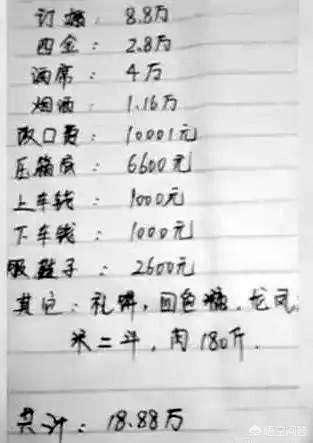 订婚：8.8万
四金：2.8万
酒席：4万
烟酒：1.16万
改口费：10001元
压箱底：6600元
上车钱：1000元
下车钱：1000元
鞋子：2600元
其它：礼饼，回色糖，龙凤，
米二斗，肉180斤.
共计：18.88万
悟空问答